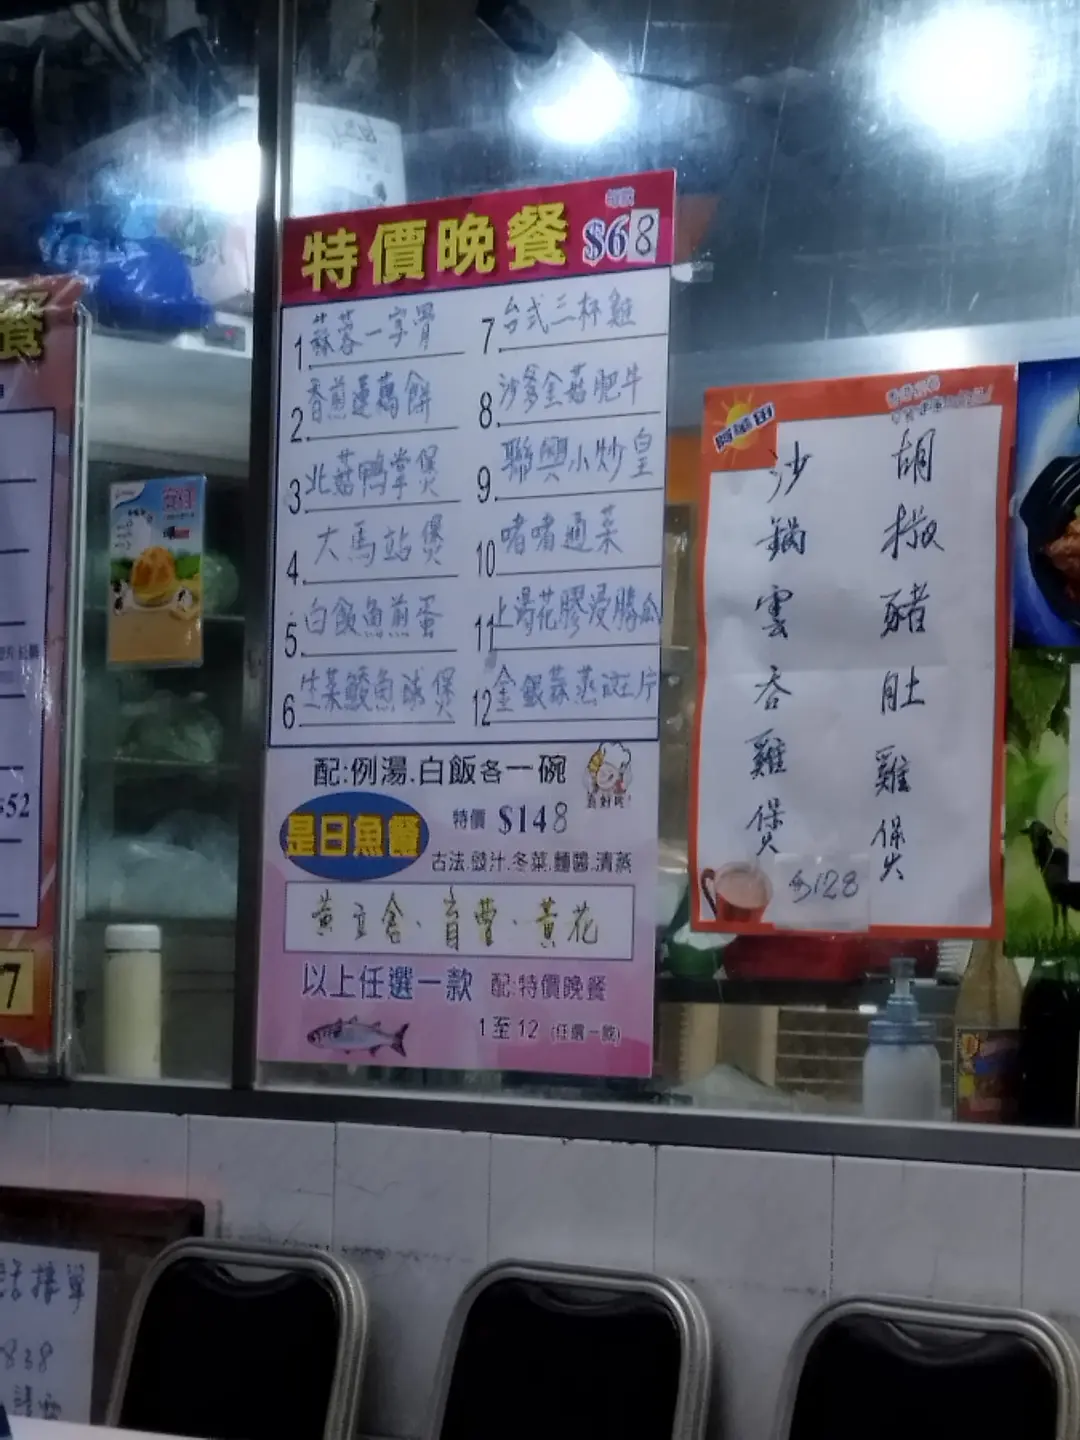 餐
$52
7
特價晚餐 每款 $68
1 蒜蓉一字骨
2 香煎蓮藕餅
3 北菇鴨掌煲
4 大馬站煲
5 白飯魚煎蛋
6 生菜鯪魚球煲
7 台式三杯雞
8 沙爹金菇肥牛
9 聯興小炒皇
10 啫啫通菜
11 上湯花膠浸勝瓜
12 金銀蒜蒸
配:例湯.白飯各一碗
是日魚餐 特價 $148
古法.豉汁.冬菜.麵醬.清蒸
黃立倉、育曹、黃花
以上任選一款 配:特價晚餐
1至12 (任選一款)
阿華田
胡椒豬肚雞煲
沙鍋雲吞雞煲
$128
接單
838